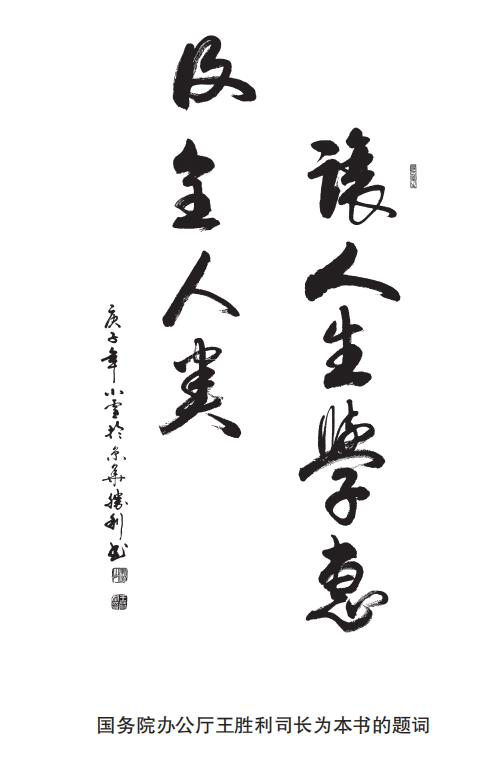 讓人生學惠
及全人类
庚子年小雪於京華勝利书
国务院办公厅王胜利司长为本书的题词